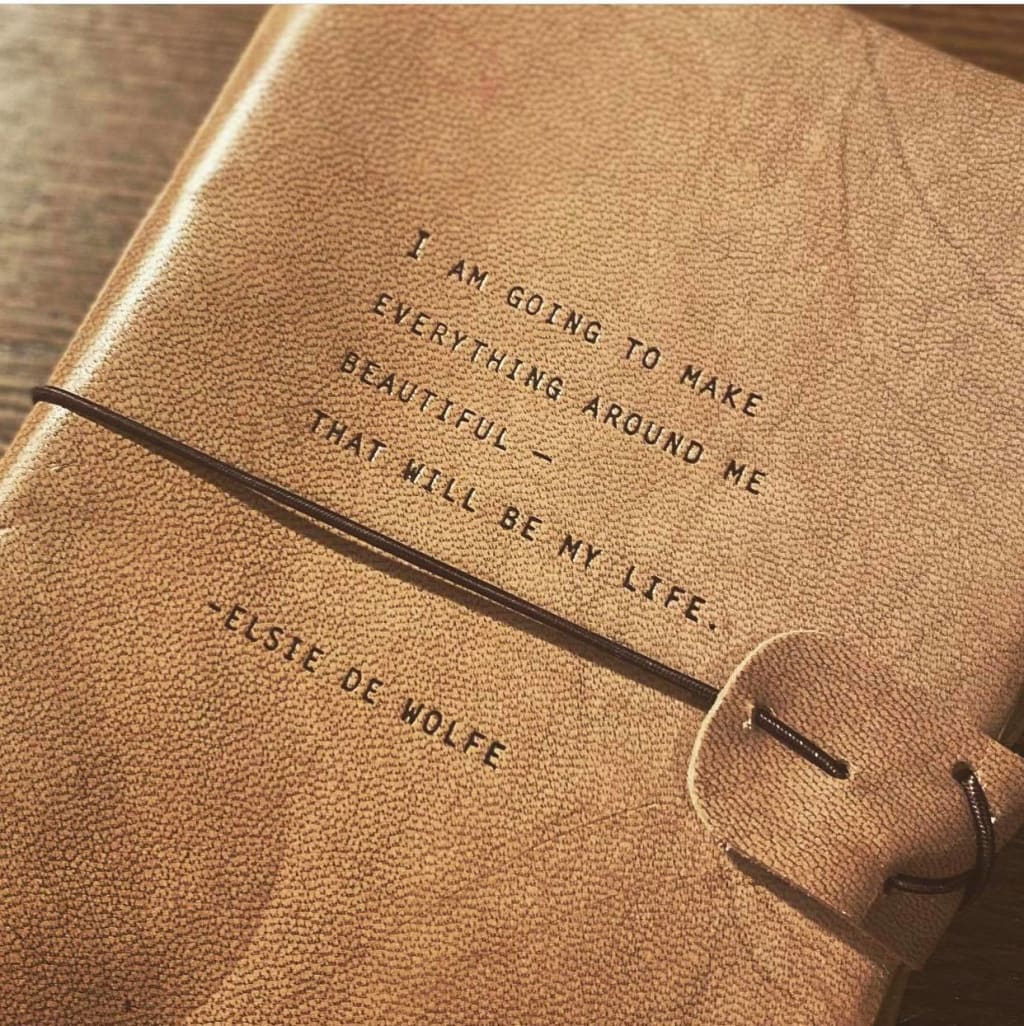 I AM GOING TO MAKE
EVERYTHING AROUND ME
BEAUTIFUL —
THAT WILL BE MY LIFE.
-ELSIE DE WOLFE